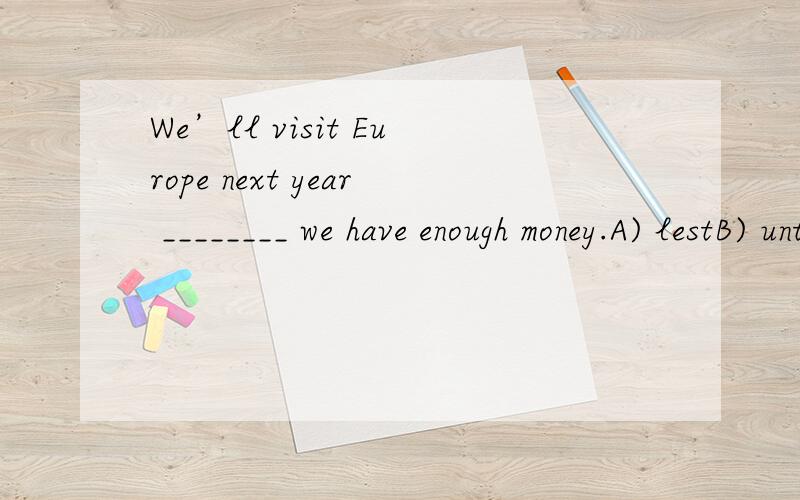 We’ll visit Eu
rope next year
________ we have enough money.A) lestB) unt